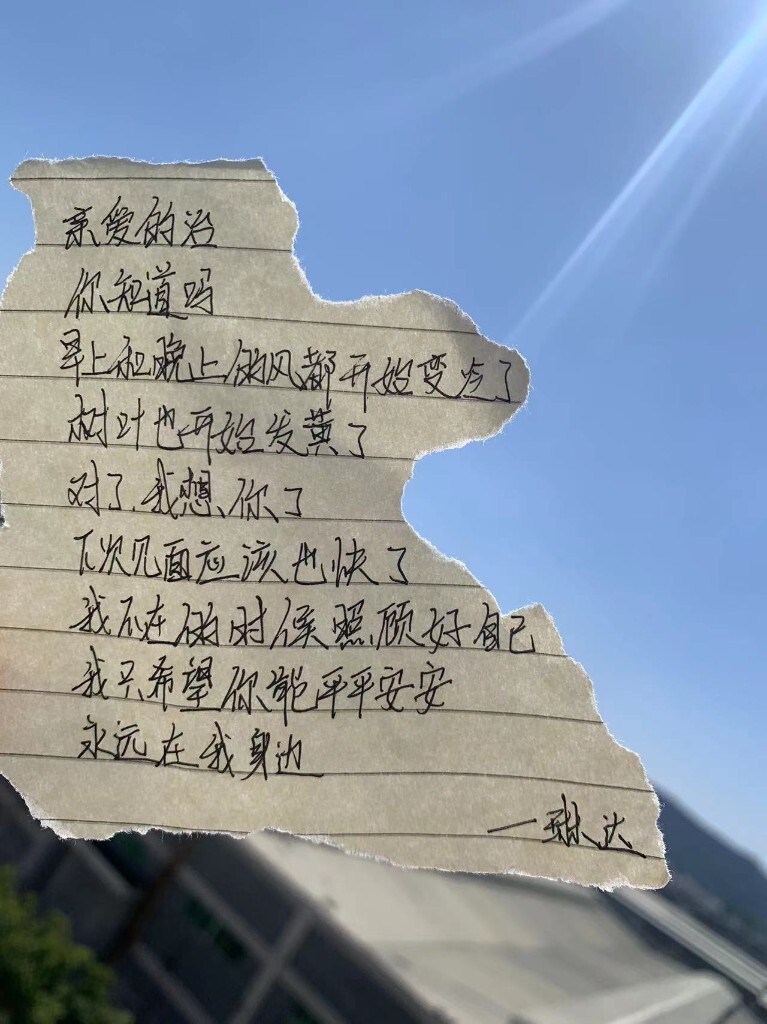 亲爱的治
你知道吗
早上和晚上的风都开始变凉了
树叶也开始发黄了
对了,我想你了
下次见面应该也快了
我不在的时候照顾好自己
我只希望你能平平安安
永远在我身边
一琳达